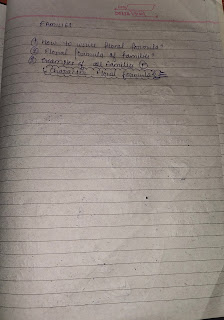 FAMILIES
(1) How to write floral formula"
(2) Floral formula of families"
(3) Characters of all families
Floral formula